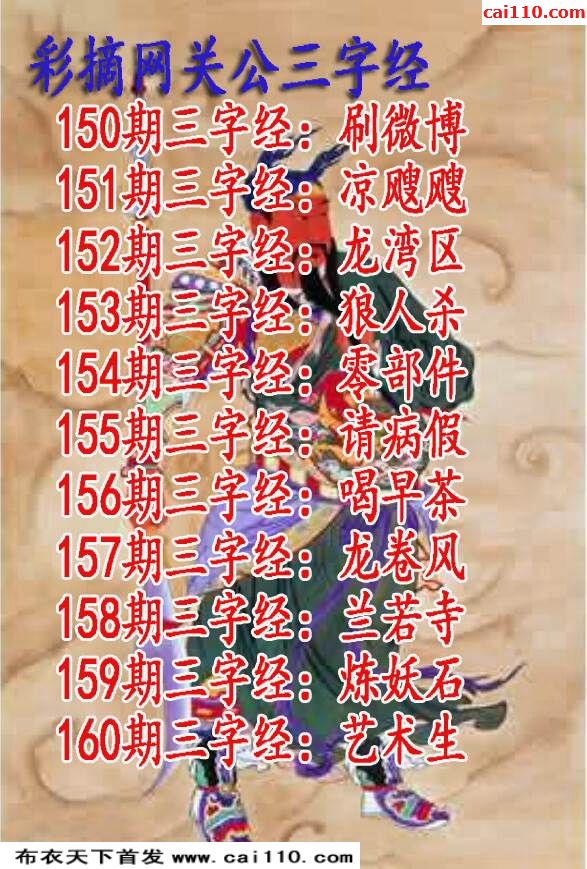 cai110.com
彩摘网关公三字经
150期三字经：刷微博
151期三字经：凉飕飕
152期三字经：龙湾区
153期三字经：狼人杀
154期三字经：零部件
155期三字经：请病假
156期三字经：喝早茶
157期三字经：龙卷风
158期三字经：兰若寺
159期三字经：炼妖石
160期三字经：艺术生
布衣天下首发 www.cai110.com